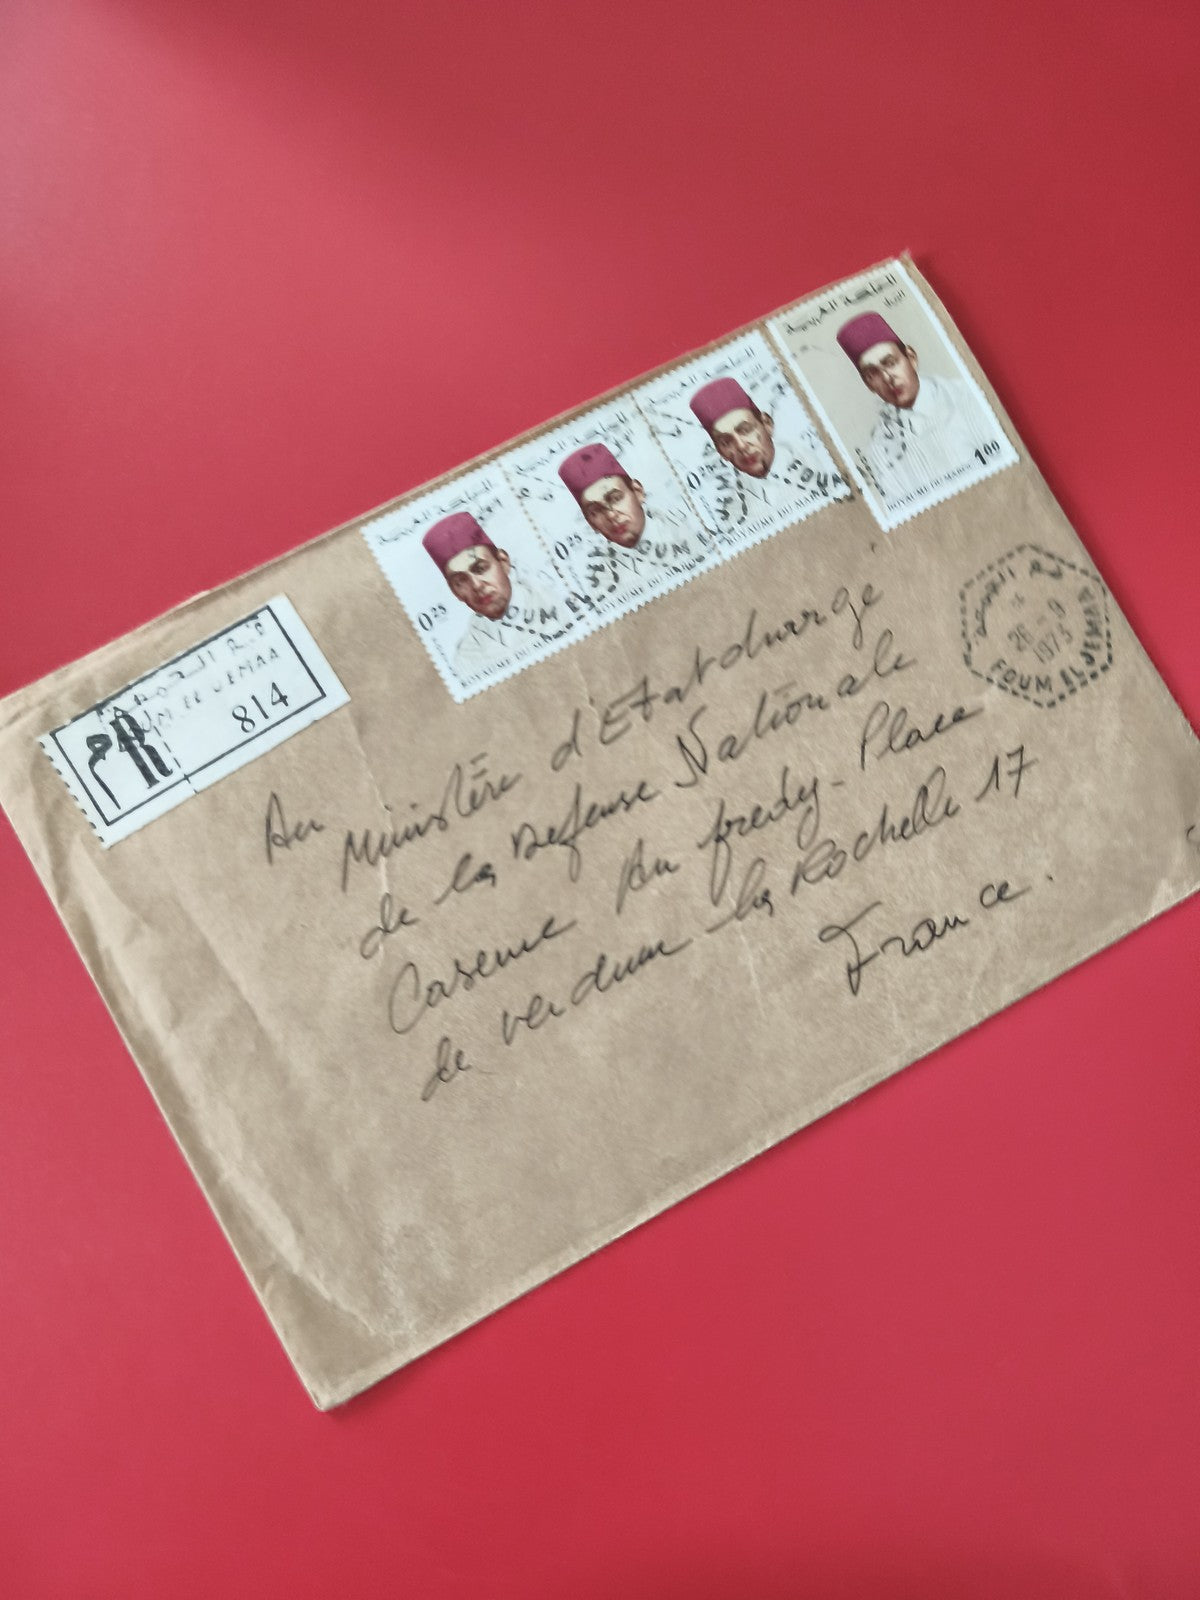 المملكة المغربية
البريد
0.25
ROYAUME DU MAROC
المملكة المغربية
البريد
0.25
ROYAUME DU MAROC
المملكة المغربية
البريد
0.25
ROYAUME DU MAROC
المملكة المغربية
البريد
1.00
ROYAUME DU MAROC
FOUM EL JEMAA
R
814
26 - 9
1975
FOUM EL JEMAA
Au
Ministère d'Etat durrgé
de la Defense Nationale
Caserne Au fredy - Place
de verdum la Rochelle 17
France.